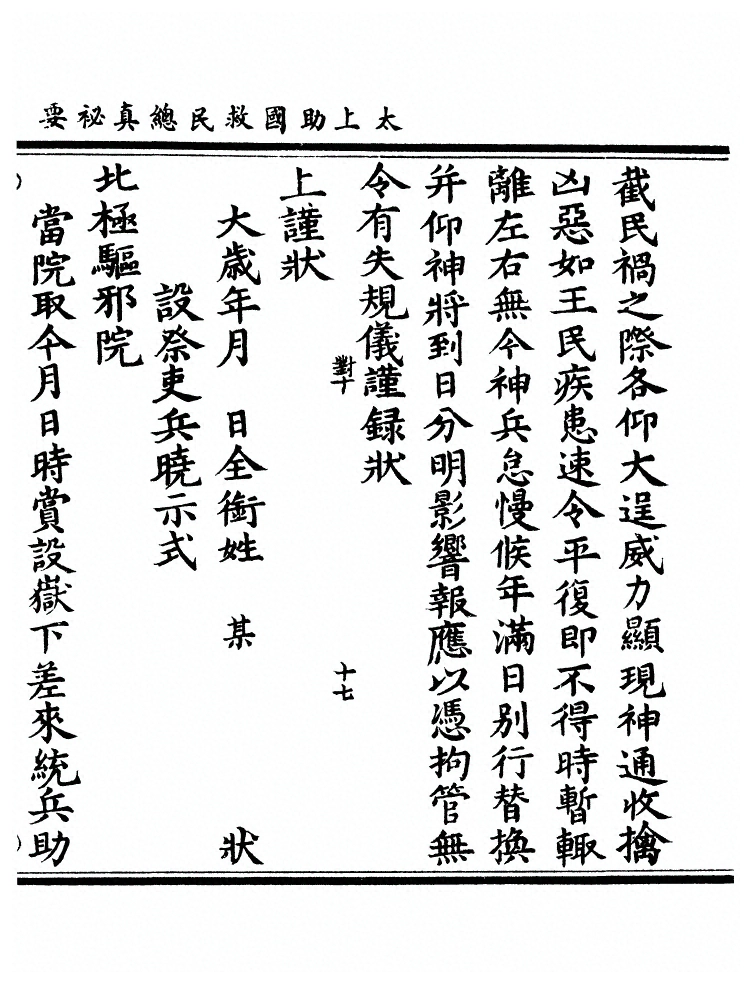 太上助國救民總真祕要
截民禍之際各仰大逞威力顯現神通收擒
凶惡如王民疾患速令平復即不得時暫輙
離左右無令神兵怠慢候年滿日別行替換
并仰神將到日分明影響報應以憑拘管無
令有失規儀謹録狀
對十
十七
上謹狀
大歲年月 日全銜姓 某 狀
設祭吏兵曉示式
北極驅邪院
當院取今月日時賞設嶽下差來統兵助